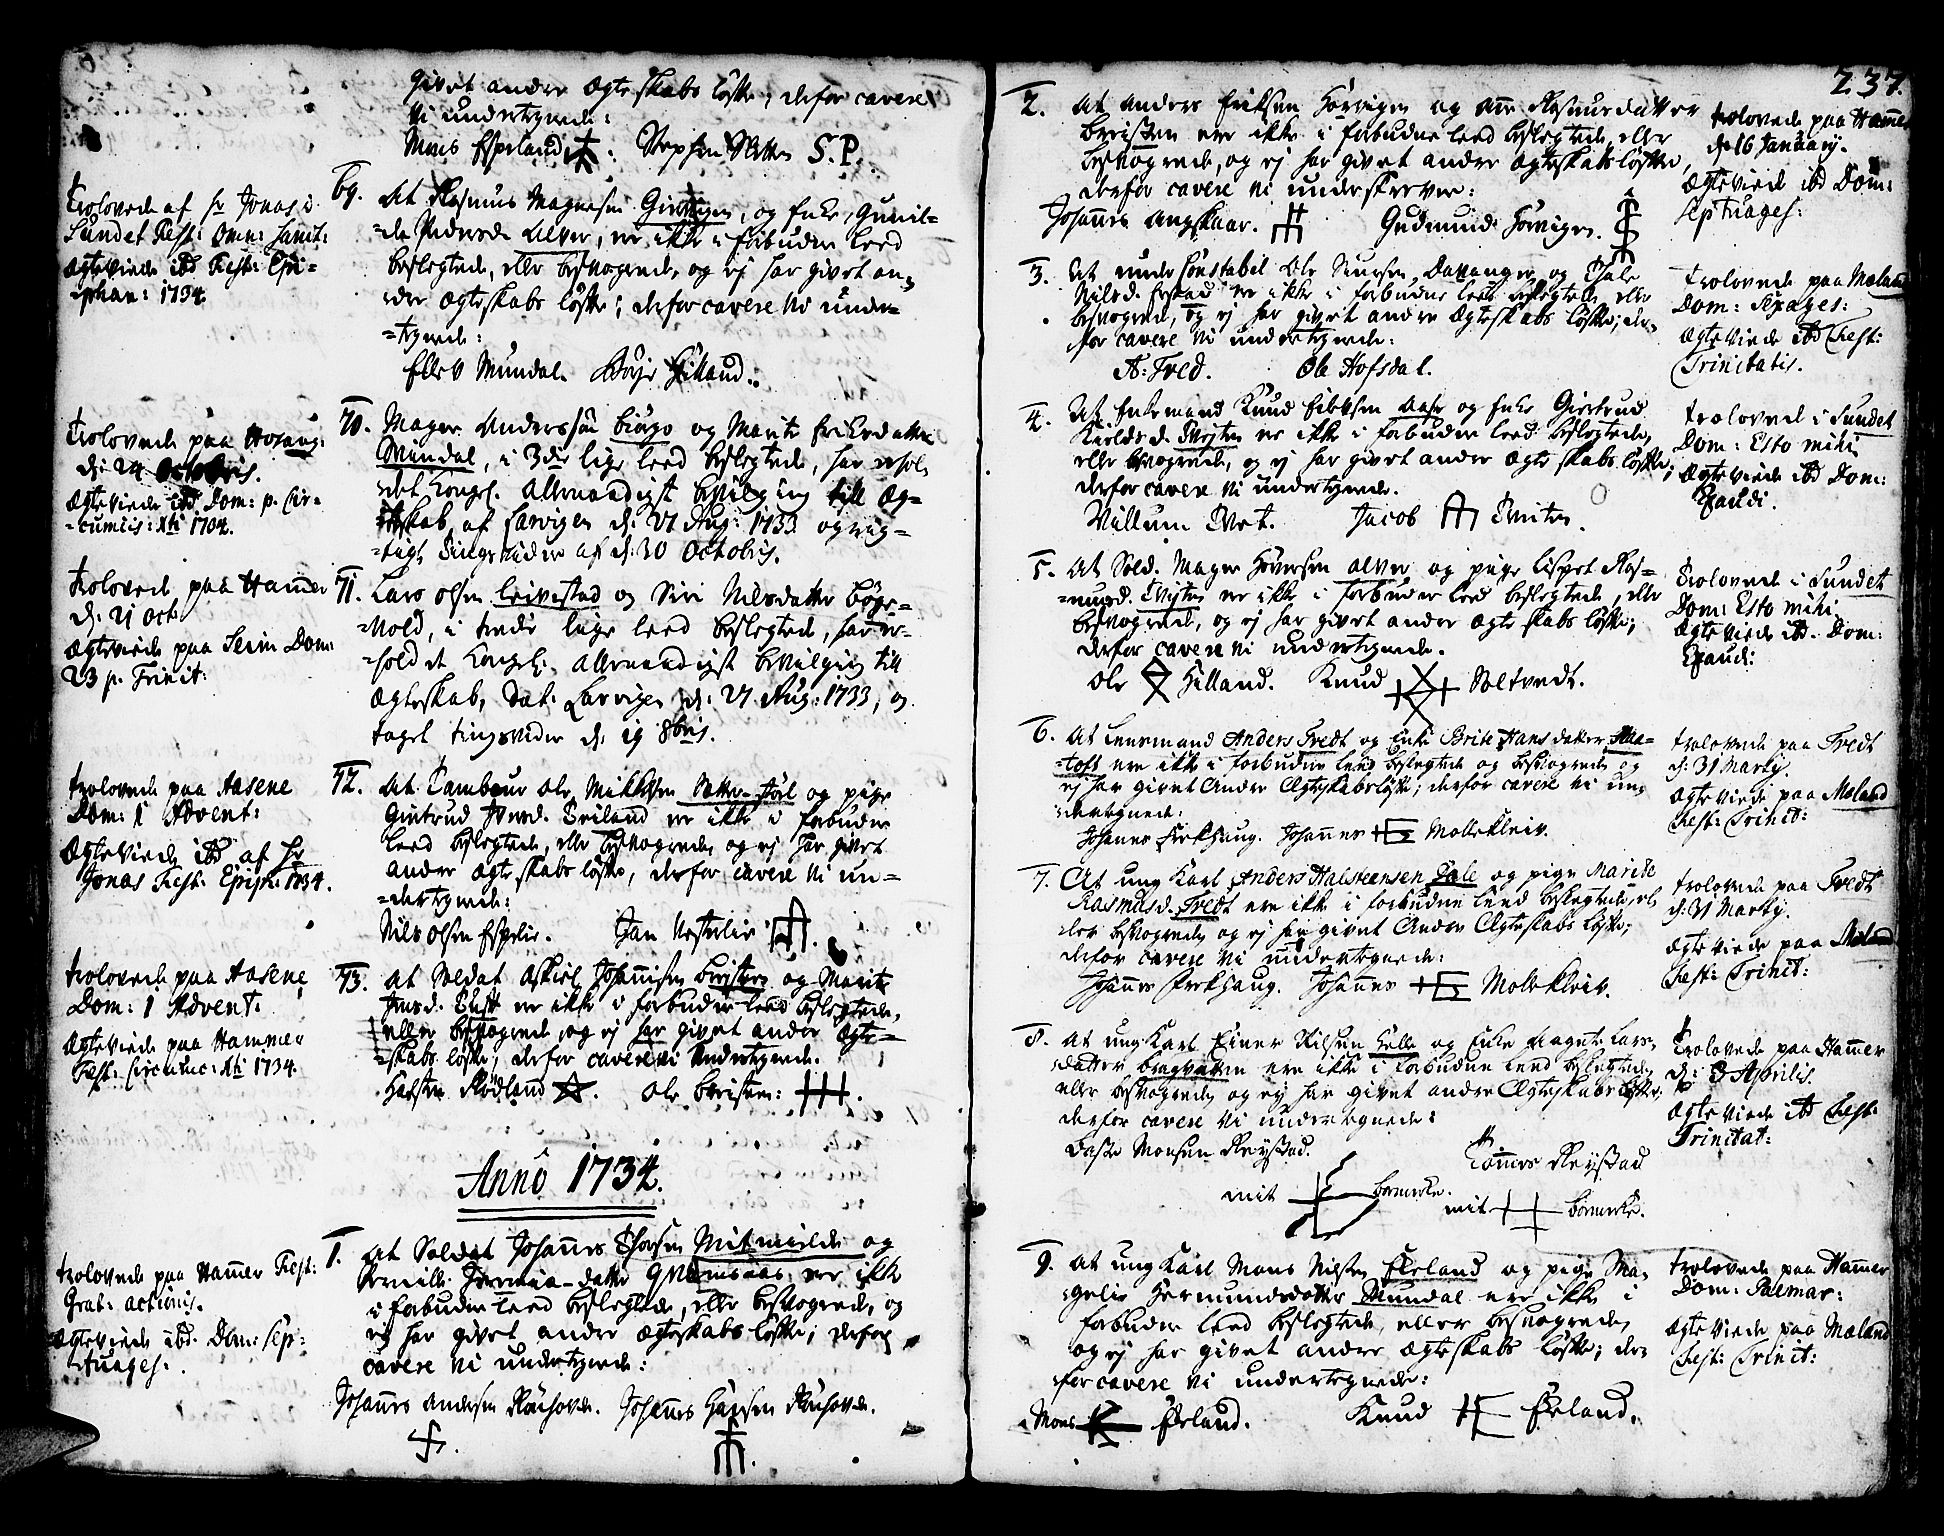 givet andre Ægteskabs løfte; derfor cavere
Vi undertegnede:
Mons Espeland Stephen Sætter S. P.
Trolovede af hr Jonas i
Sundet Fest: Omn: Sanct:
Ægteviede ibd Fest: Epi-
-phan: 1734.
69. At Rasmus Magnesen, og Enke, Gunil-
-da Pedersd. Alver, er ikke i forbuden Leed
beslegtede, eller besvogrede, og ej har givet an-
-dre Ægteskabs løfte; derfor cavere Vi under-
-tegnede:
Ellev Mundal. Børje Hilland.
Trolovede paa Hosang:
d: 24 Octobris.
Ægteviede ibd Dom: p. Cir-
-cumcis: Xti 1704.
70. Magne Anderssøn Biørgo og Marite Eriksdatter
Mundal, i 3die lige leed beslegtede, har erhol-
-det Kongel: allernaadigst bevilging till Æg-
-teskab, af Larvigen d: 27 Aug: 1733 og rig-
-tigt Tings vidne af d: 30 Octobris.
Trolovede paa Hamer
d: 21 Oct:
Ægteviede paa Seim Dom:
23 p. Trinit:
71. Lars Olsen Leivestad og Siri Nilsdatter Böge-
-Vold, i tredie lige leed beslegtede, har er-
-holdet Kongel: Allernaadigst bevilging till
Ægteskab, Dat: Larvigen d: 27 Aug: 1733, og
taget tingsvidne d: 19 8bris.
Trolovede paa Aasene
Dom: 1 Advent:
Ægteviede ibd af hr
Jonas Fest: Epiph: 1734.
72. At Tambour Ole Mikkelsen Sætter-støl og pige
Giertrud Iversd. Eriland er ikke i forbuden
leed beslegtede, eller besvogrede, og ej har givet
andre Ægteskabs løfte, derfor cavere Vi un-
-dertegnede:
Nils Olsen Espelie. Jan Vesterlie
Trolovede paa Aasene
Dom: 1 Advent:
Ægteviede paa Hammer
Fest: Circumc: Xti 1734.
73. At Soldat Askiel Johannisen Beristen og Marite
Jensd. er ikke i forbuden leed beslegtede,
eller besvogrede, og ej har givet andre Ægte-
-skabs løfte; derfor cavere Vi undertegnede.
Halsten Rødland. Ole Beristen:
Anno 1734.
Trolovede paa Hamer Fest:
Grat: actionis.
Ægteviede ibd. Dom: Sep-
-tuages:
1. At Soldat Johannes Thorsen Mitmiilde og
Pernille Jeremia-datter er ikke
i forbuden leed beslegtede, eller besvogrede, og
ej har givet andre Ægteskabs løfte; derfor
cavere Vi undertegnede:
Johannes Andersen Röchovde. Johannes Hansen Röchovde.
237.
2. At Anders Eriksen Horvigen og Ane Rasmusdatter
Beristen ere ikke i forbuden leed beslegtede, eller
besvogrede, og ej har givet andre Ægteskabs løfte,
derfor cavere Vi underskrevne:
Johannes Angskaar. Gudmund Horvigen.
Trolovede paa Hamer
d: 16 January.
Ægteviede ibd Dom:
Septuages:
3. At under Constabel Ole Davanger og
Nilsd. er ikke i forbuden leed beslegtede eller
besvogrede, og ej har givet andre Ægteskabs løfte; der-
for cavere Vi undertegnede:
A: Tved. Ole Hofsdal.
Trolovede paa Mæland
Dom: Sexages:
Ægteviede ibd Fest:
Trinitatis.
4. At Enkemand Knud Aase og Enke Giertrud
er ikke i forbuden leed beslegtede,
eller besvogrede, og ej har givet andre Ægteskabs løfte;
derfor cavere Vi undertegnede.
Villum Tvet. Jacob Tveiten.
Trolovede i Sundet
Dom: Esto mihi
Ægteviede ibd Dom:
Exaudi.
5. At Sold. Magne Halversen Alver og pige Lispet Ras-
-musd. Tveiten er ikke i forbuden leed beslegtede, eller
besvogrede, og ej har givet andre Ægteskabs løfte;
derfor cavere Vi undertegnede.
Ole Hilland. Knud Soltvedt.
Trolovede i Sundet
Dom: Esto mihi
Ægteviede ibd. Dom:
Exaudi:
6. At Lensmand Anders Tvedt og Enke Brite Hansdatter
-toft ere ikke i forbuden leed beslegtede og besvogrede og
ej har givet Andre Ægteskabsløfte; derfor cavere Vi un-
dertegnede:
Johannes Eirkhaug. Johannes Mollekleiv.
Trolovede paa Tvedt
d: 31 Marty.
Ægteviede paa Mæland
Fest: Trinit:
7. At ung Karl Anders Halsteensen Dale og pige Marite
Rasmusd. Tvedt ere ikke i forbuden leed beslegtede, el-
ler besvogrede og ej har givet Andre Ægteskabs løfte;
derfor cavere Vi undertegnede:
Johannes Eirkhaug. Johannes Mollekleiv.
Trolovede paa Tvedt
d: 31 Marty.
Ægteviede paa Mæland
Fest: Trinit:
8. At ung Karl Einer Nilsen Helle og Enke Magnete Lars-
datter ere ikke i forbuden leed beslegtede
eller besvogrede og ej har givet andre Ægteskabs løfte;
derfor cavere Vi undertegnede:
Baste Monsen Reystad. Tommes Reystad
mit bomerke. mit bomerke.
Trolovede paa Hamer
d: 3 Aprilis.
Ægteviede ibd Fest:
Trinitat:
9. At ung Karl Mons Nilsen Eieland og pige Ma-
gelie Hermundsdatter Mundal ere ikke i
forbuden leed beslegtede, eller besvogrede,
og ej har givet andre Ægteskabs løfte; der-
for cavere Vi undertegnede:
Mons Eieland. Knud Eieland.
Trolovede paa Hamer
Dom: Palmar:
Ægteviede paa Mæland
Fest: Trinit: